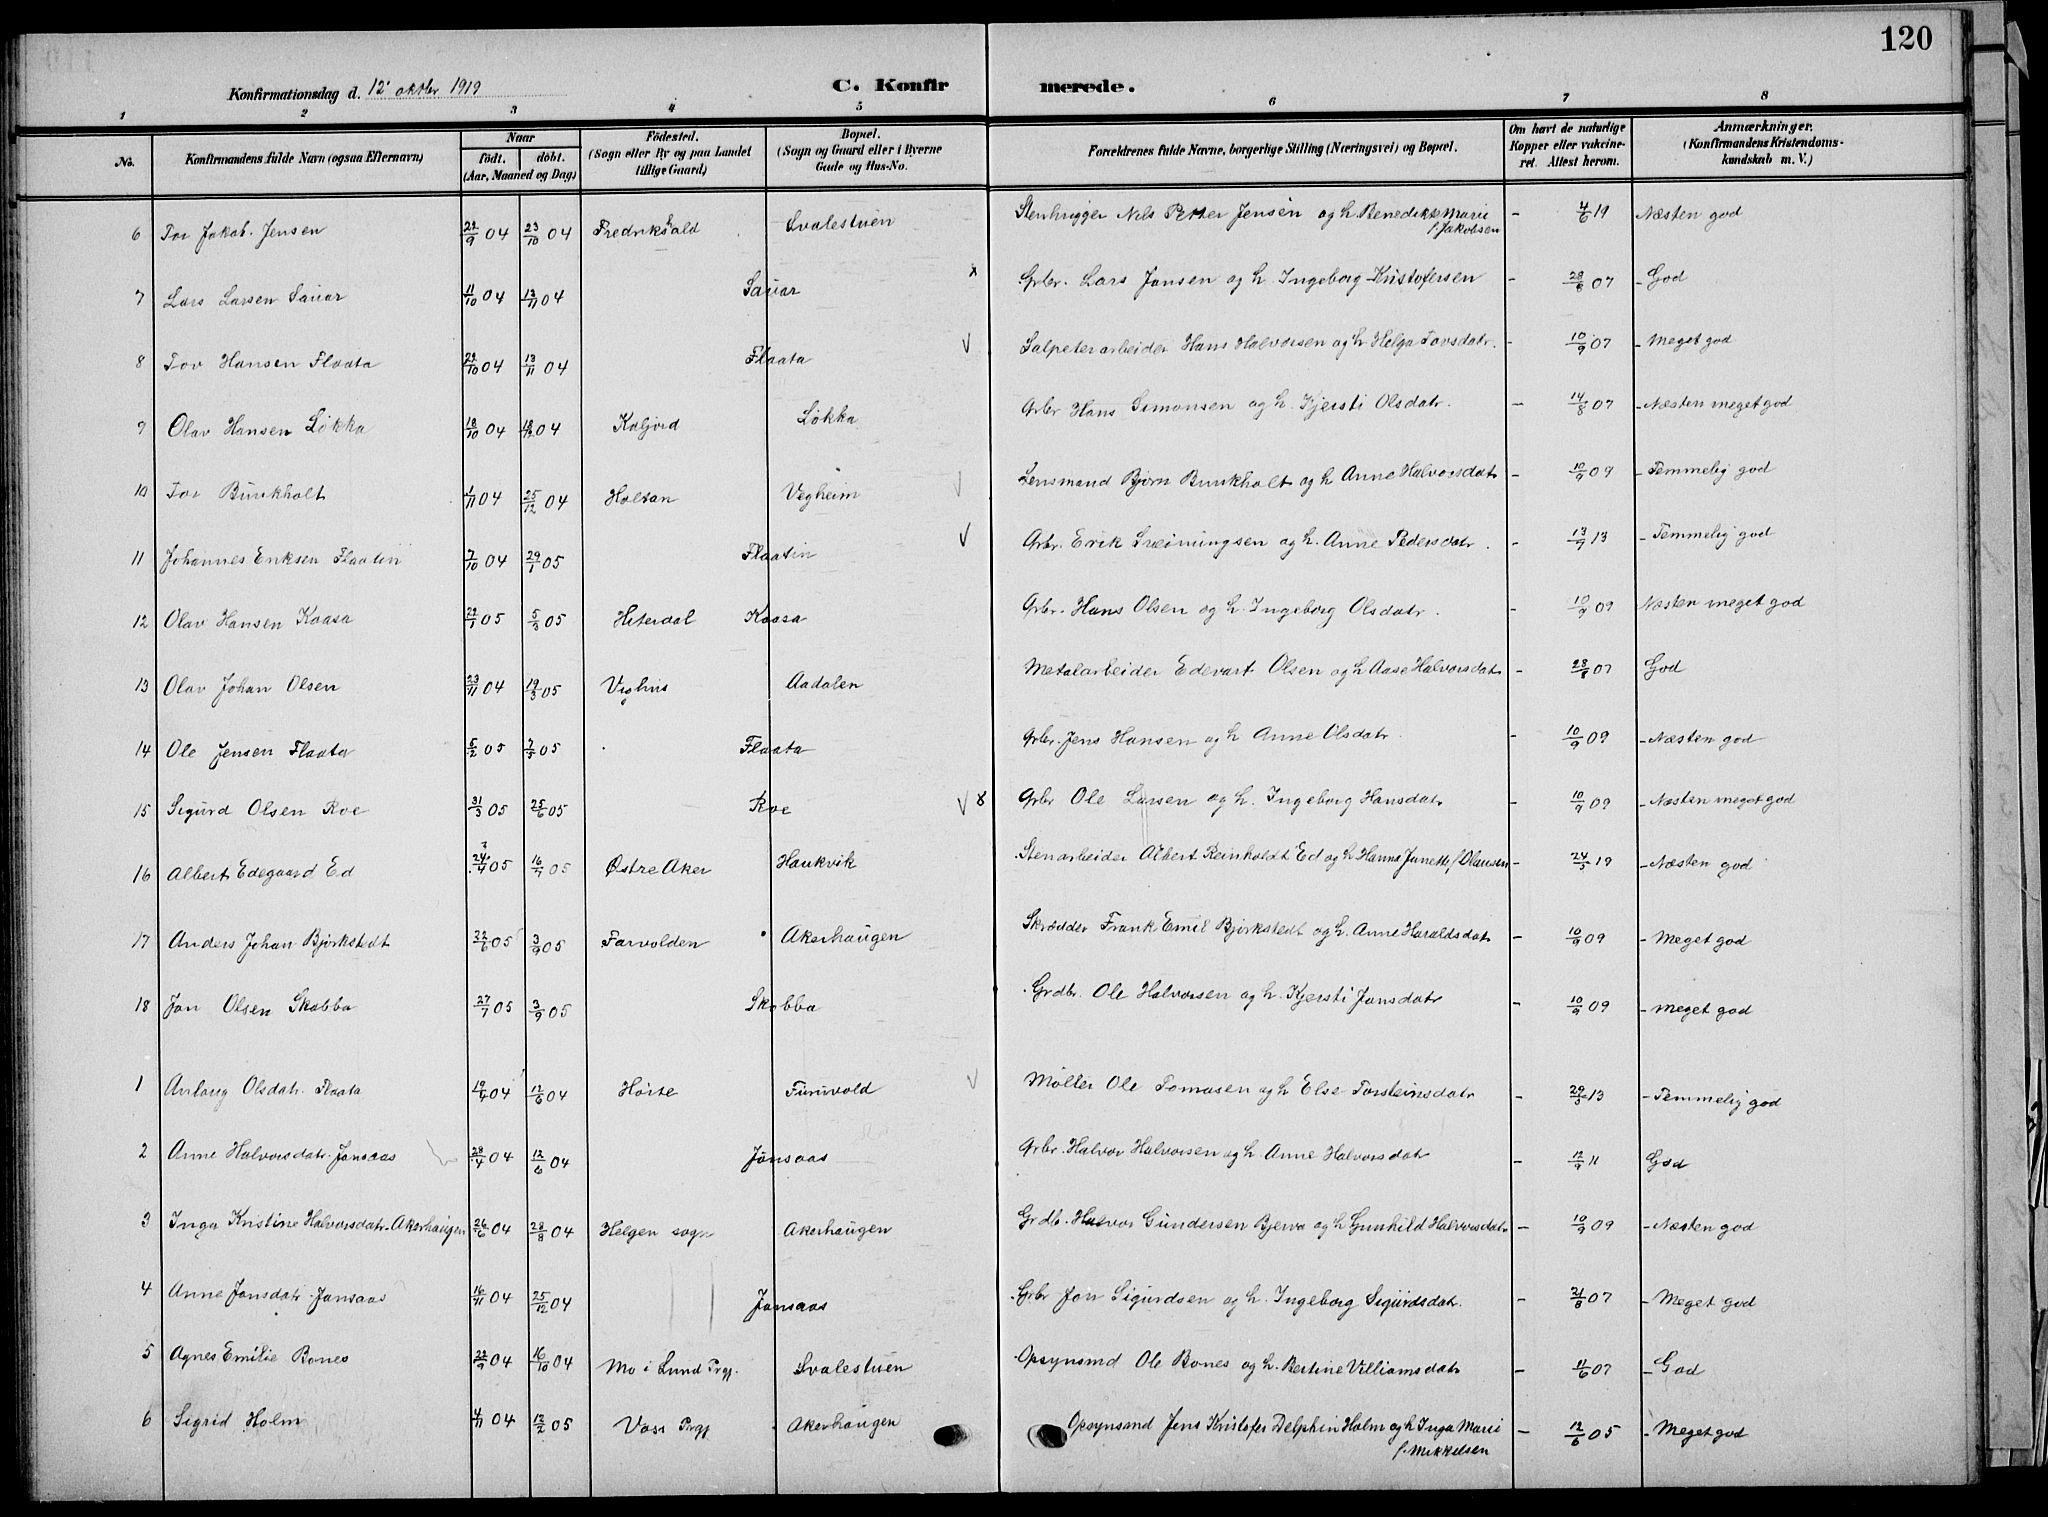 120
Konfirmationsdag d. 12' oktbr 1919 C. Konfirmerede.
1 2 3 4 5 6 7 8
No. Konfirmandens fulde Navn (ogsaa Efternavn) Naar født. døbt. (Aar, Maaned og Dag) Fødested. (Sogn eller By og paa Landet tillige Gaard) Bopæl. (Sogn og Gaard eller i Byerne Gade og Hus-No. Forældrenes fulde Navne, borgerlige Stilling (Næringsvei) og Bopæl. Om havt de naturlige Kopper eller vakcineret. Attest herom. Anmærkninger. (Konfirmandens Kristendomskundskab m. V.)
6 Tor Jakob Jensen 22/9 04 23/10 04 Fredrikshald Svalestuen Stenhugger Nils Petter Jensen og h. Benedikte Marie f. Jakobsen - 4/6 19 Næsten god
7 Lars Larsen Sauar 11/10 04 13/11 04 Sauar x Grbr. Lars Jansen og h. Ingeborg Kristofersen - 28/8 07 - God
8 Tov Hansen Flaata 22/10 04 13/11 04 Flaata V Salpeterarbeider Hans Halvorsen og h. Helga Tovsdatr. - 10/9 07 - Meget god
9 Olav Hansen Løkka 18/10 04 04 Løkka Grbr Hans Simonsen og h. Kjersti Olsdatr. - 14/8 07 - Næsten meget god
10 Tor Burkholt 1/11 04 25/12 04 Holtan Vegheim V Lensmand Bjørn Burkholt og h Anne Halvorsdatr - 10/9 09 - Temmelig god
11 Johannes Eriksen Flaatin 7/10 04 29/1 05 Flaatin V Grbr. Erik Sveinungsen og h. Anne Pedersdatr. - 13/7 13 - Temmelig god
12 Olav Hansen Kaasa 22/1 05 5/3 05 Hiterdal Kaasa Grbr. Hans Olsen og h. Ingeborg Olsdatr. - 10/9 09 Næsten meget god
13 Olav Johan Olsen 23/11 04 19/3 05 Veghus Aadalen Metalarbeider Edevart Olsen og h Aase Halvorsdatr - 28/8 07 God
14 Ole Jensen Flaata 5/2 05 7/5 05 Flaata Grbr. Jens Hansen og h Anne Olsdatr. - 10/9 09 - Næsten god
15 Sigurd Olsen Roe 31/3 05 25/6 05 Roe V 8 Grbr Ole Larsen og h. Ingeborg Hansdatr - 10/9 09 - Næsten meget god
16 Albert Edegaard Ed 24/4 05 16/7 05 Østre Aker Haukvik Stenarbeider Albert Reinholdt Ed og h Hanna Janette f. Olausen - 24/5 19 - Næsten god
17 Anders Johan Bjørkstedt 22/6 05 3/9 05 Farvolden Akerhaugen Skrædder Frank Emil Bjørkstedt og h. Anne Haraldsdatr - 10/9 09 - Meget god
18 Jon Olsen Skobba 27/7 05 3/9 05 Skobba Grdbr. Ole Halvorsen og h. Kjersti Jonsdatr - 10/9 09 - Meget god
1 Anlaug Olsdatr. Flaata 19/4 04 12/6 04 Høite Furuvold V Møller Ole Tomasen og h Else Torsteinsdatr - 29/5 13 - Temmelig god
2 Anne Halvorsdatr. Jonsaas 28/4 04 12/6 04 Jonsaas Grbr. Halvor Halvorsen og h. Anne Halvorsdatr - 12/9 11 God
3 Inga Kristine Halvorsdatr. Akerhaugen 26/6 04 28/8 04 Helgen sogn Akerhaugen Grdb. Halvor Gundersen Bjerva og h Gunhild Halvorsdatr - 10/9 09 - Næsten god
4 Anne Jonsdatr. Jonsaas 16/11 04 25/12 04 Jonsaas Grbr Jon Sigurdsen og h. Ingeborg Sigurdsdatr. - 21/8 07 - Meget god
5 Agnes Emilie Bones 22/9 04 16/10 04 Mo i Lund Prgj. Svalestuen Opsynsmd Ole Bones og h. Bertine Villiamsdatr - 11/6 07 - God
6 Sigrid Holm 4/11 04 12/2 05 Voss Prgj Akerhaugen Opsynsmd Jens Kristofer Delphin Holm og h Inga Marie f. Mikkelsen - 12/6 05 - Meget god